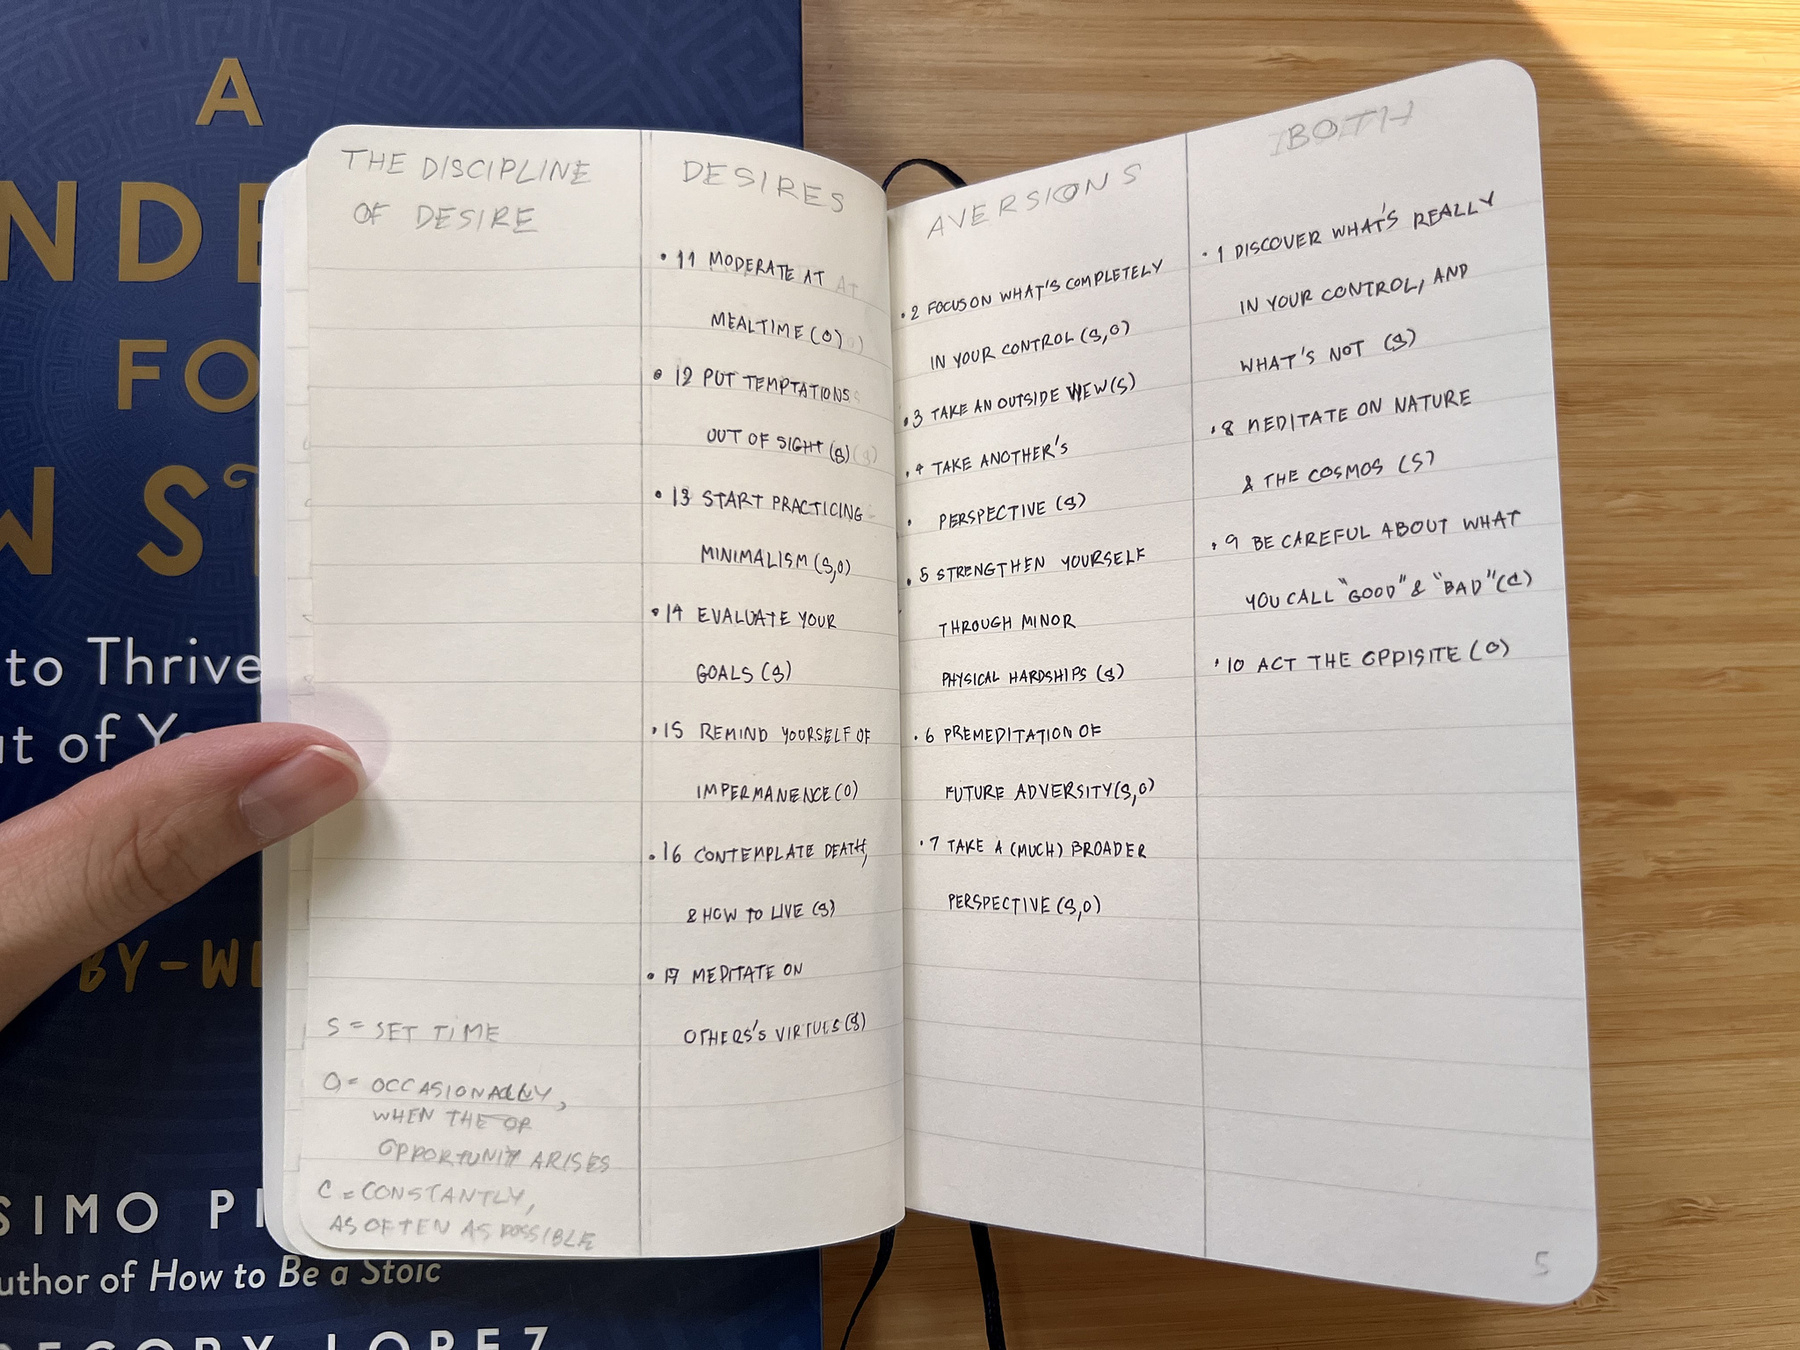 A
NDE
FO
W ST
to Thrive
ut of Yo
BY-WE
SIMO PI
uthor of How to Be a Stoic
REGORY LOPEZ
THE DISCIPLINE
OF DESIRE
S = SET TIME
O = OCCASIONALLY,
WHEN THE OP
OPPORTUNITY ARISES
C = CONSTANTLY,
AS OFTEN AS POSSIBLE
DESIRES
• 11 MODERATE AT
MEALTIME (O)
• 12 PUT TEMPTATIONS
OUT OF SIGHT (S)
• 13 START PRACTICING
MINIMALISM (S,O)
• 14 EVALUATE YOUR
GOALS (S)
• 15 REMIND YOURSELF OF
IMPERMANENCE (O)
• 16 CONTEMPLATE DEATH,
& HOW TO LIVE (S)
• 17 MEDITATE ON
OTHERS'S VIRTUES (S)
AVERSIONS
• 2 FOCUS ON WHAT'S COMPLETELY
IN YOUR CONTROL (S,O)
• 3 TAKE AN OUTSIDE VIEW (S)
• 4 TAKE ANOTHER'S
• PERSPECTIVE (S)
• 5 STRENGTHEN YOURSELF
THROUGH MINOR
PHYSICAL HARDSHIPS (S)
• 6 PREMEDITATION OF
FUTURE ADVERSITY (S,O)
• 7 TAKE A (MUCH) BROADER
PERSPECTIVE (S,O)
BOTH
• 1 DISCOVER WHAT'S REALLY
IN YOUR CONTROL, AND
WHAT'S NOT (S)
• 8 MEDITATE ON NATURE
& THE COSMOS (S)
• 9 BE CAREFUL ABOUT WHAT
YOU CALL "GOOD" & "BAD" (C)
• 10 ACT THE OPPISITE (O)
5